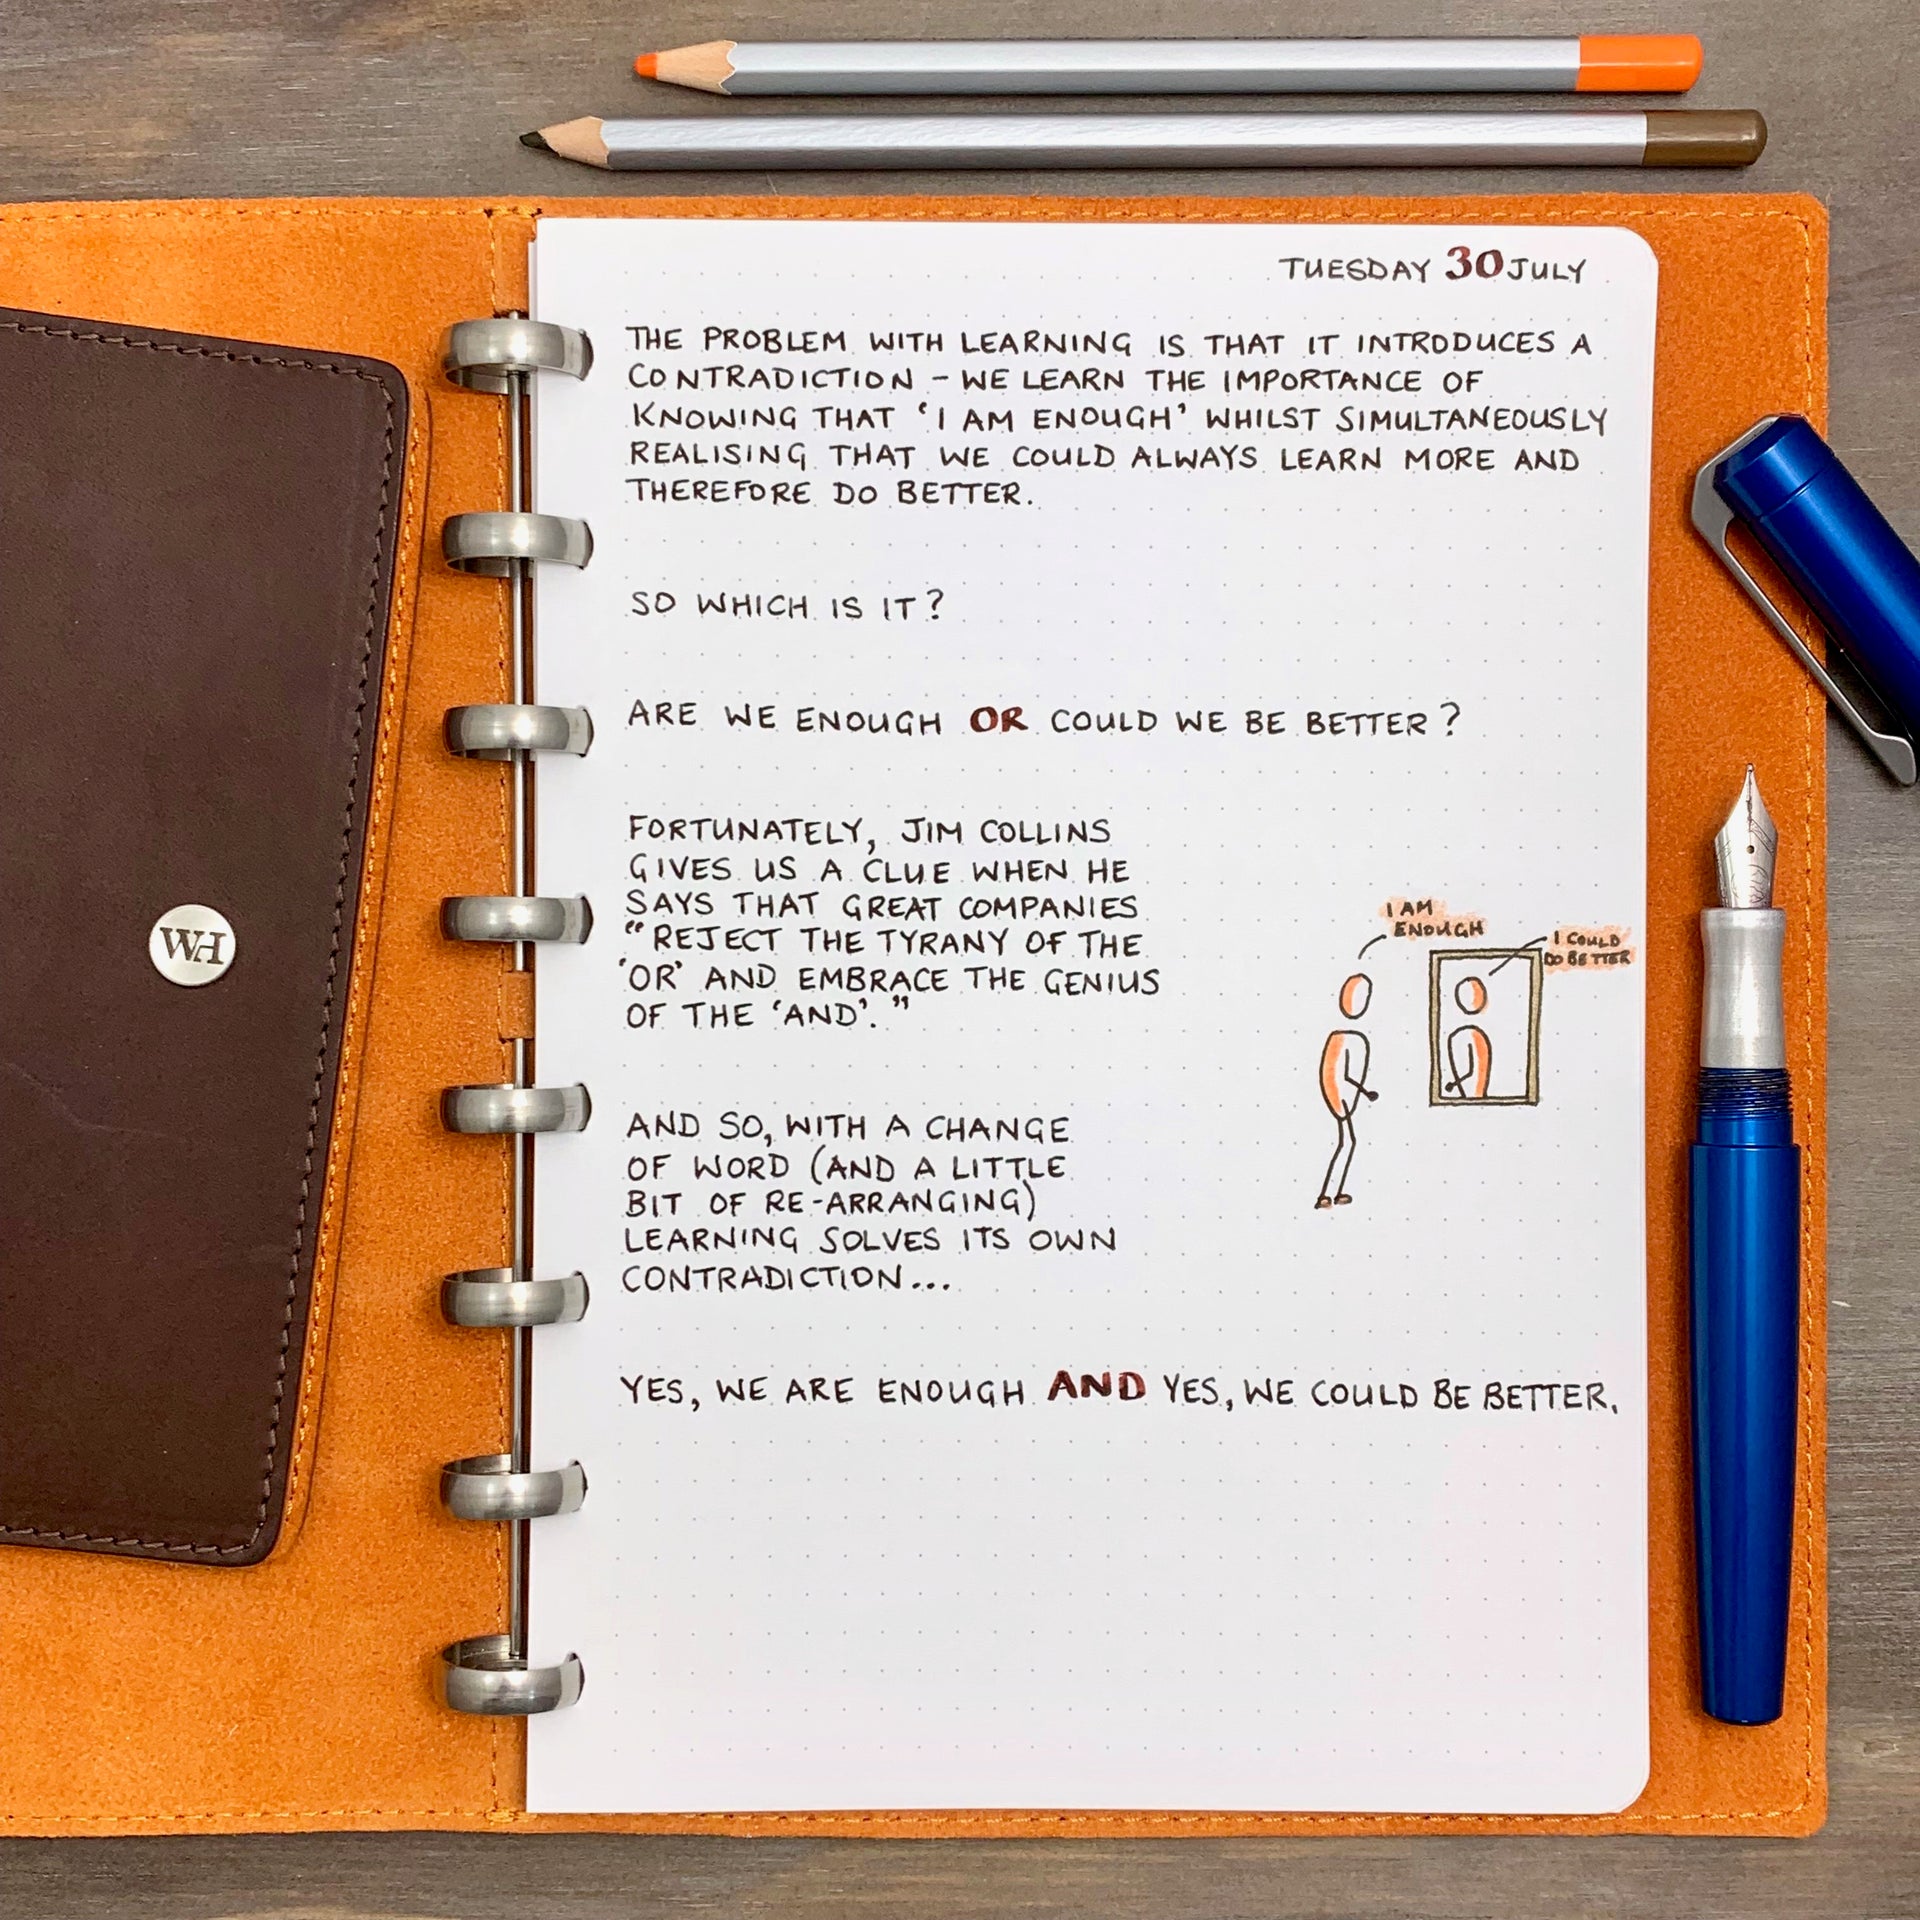 TUESDAY 30 JULY
THE PROBLEM WITH LEARNING IS THAT IT INTRODUCES A
CONTRADICTION – WE LEARN THE IMPORTANCE OF
KNOWING THAT ‘I AM ENOUGH’ WHILST SIMULTANEOUSLY
REALISING THAT WE COULD ALWAYS LEARN MORE AND
THEREFORE DO BETTER.
SO WHICH IS IT?
ARE WE ENOUGH OR COULD WE BE BETTER?
FORTUNATELY, JIM COLLINS
GIVES US A CLUE WHEN HE
SAYS THAT GREAT COMPANIES
“REJECT THE TYRANY OF THE
‘OR’ AND EMBRACE THE GENIUS
OF THE ‘AND’.”
I AM
ENOUGH
I COULD
DO BETTER
AND SO, WITH A CHANGE
OF WORD (AND A LITTLE
BIT OF RE-ARRANGING)
LEARNING SOLVES ITS OWN
CONTRADICTION...
YES, WE ARE ENOUGH AND YES, WE COULD BE BETTER.
WH